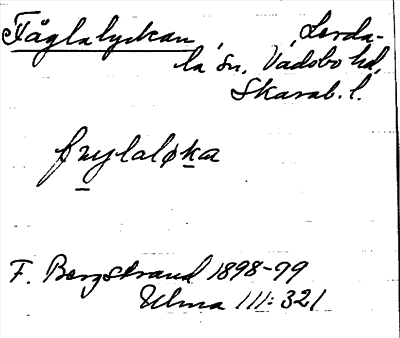 Fåglalyckan Lerda-
la sn, Vadsbo hd,
Skarab. l.
fuglaløka
F. Bergstrand 1898-99
Ulma 111:321